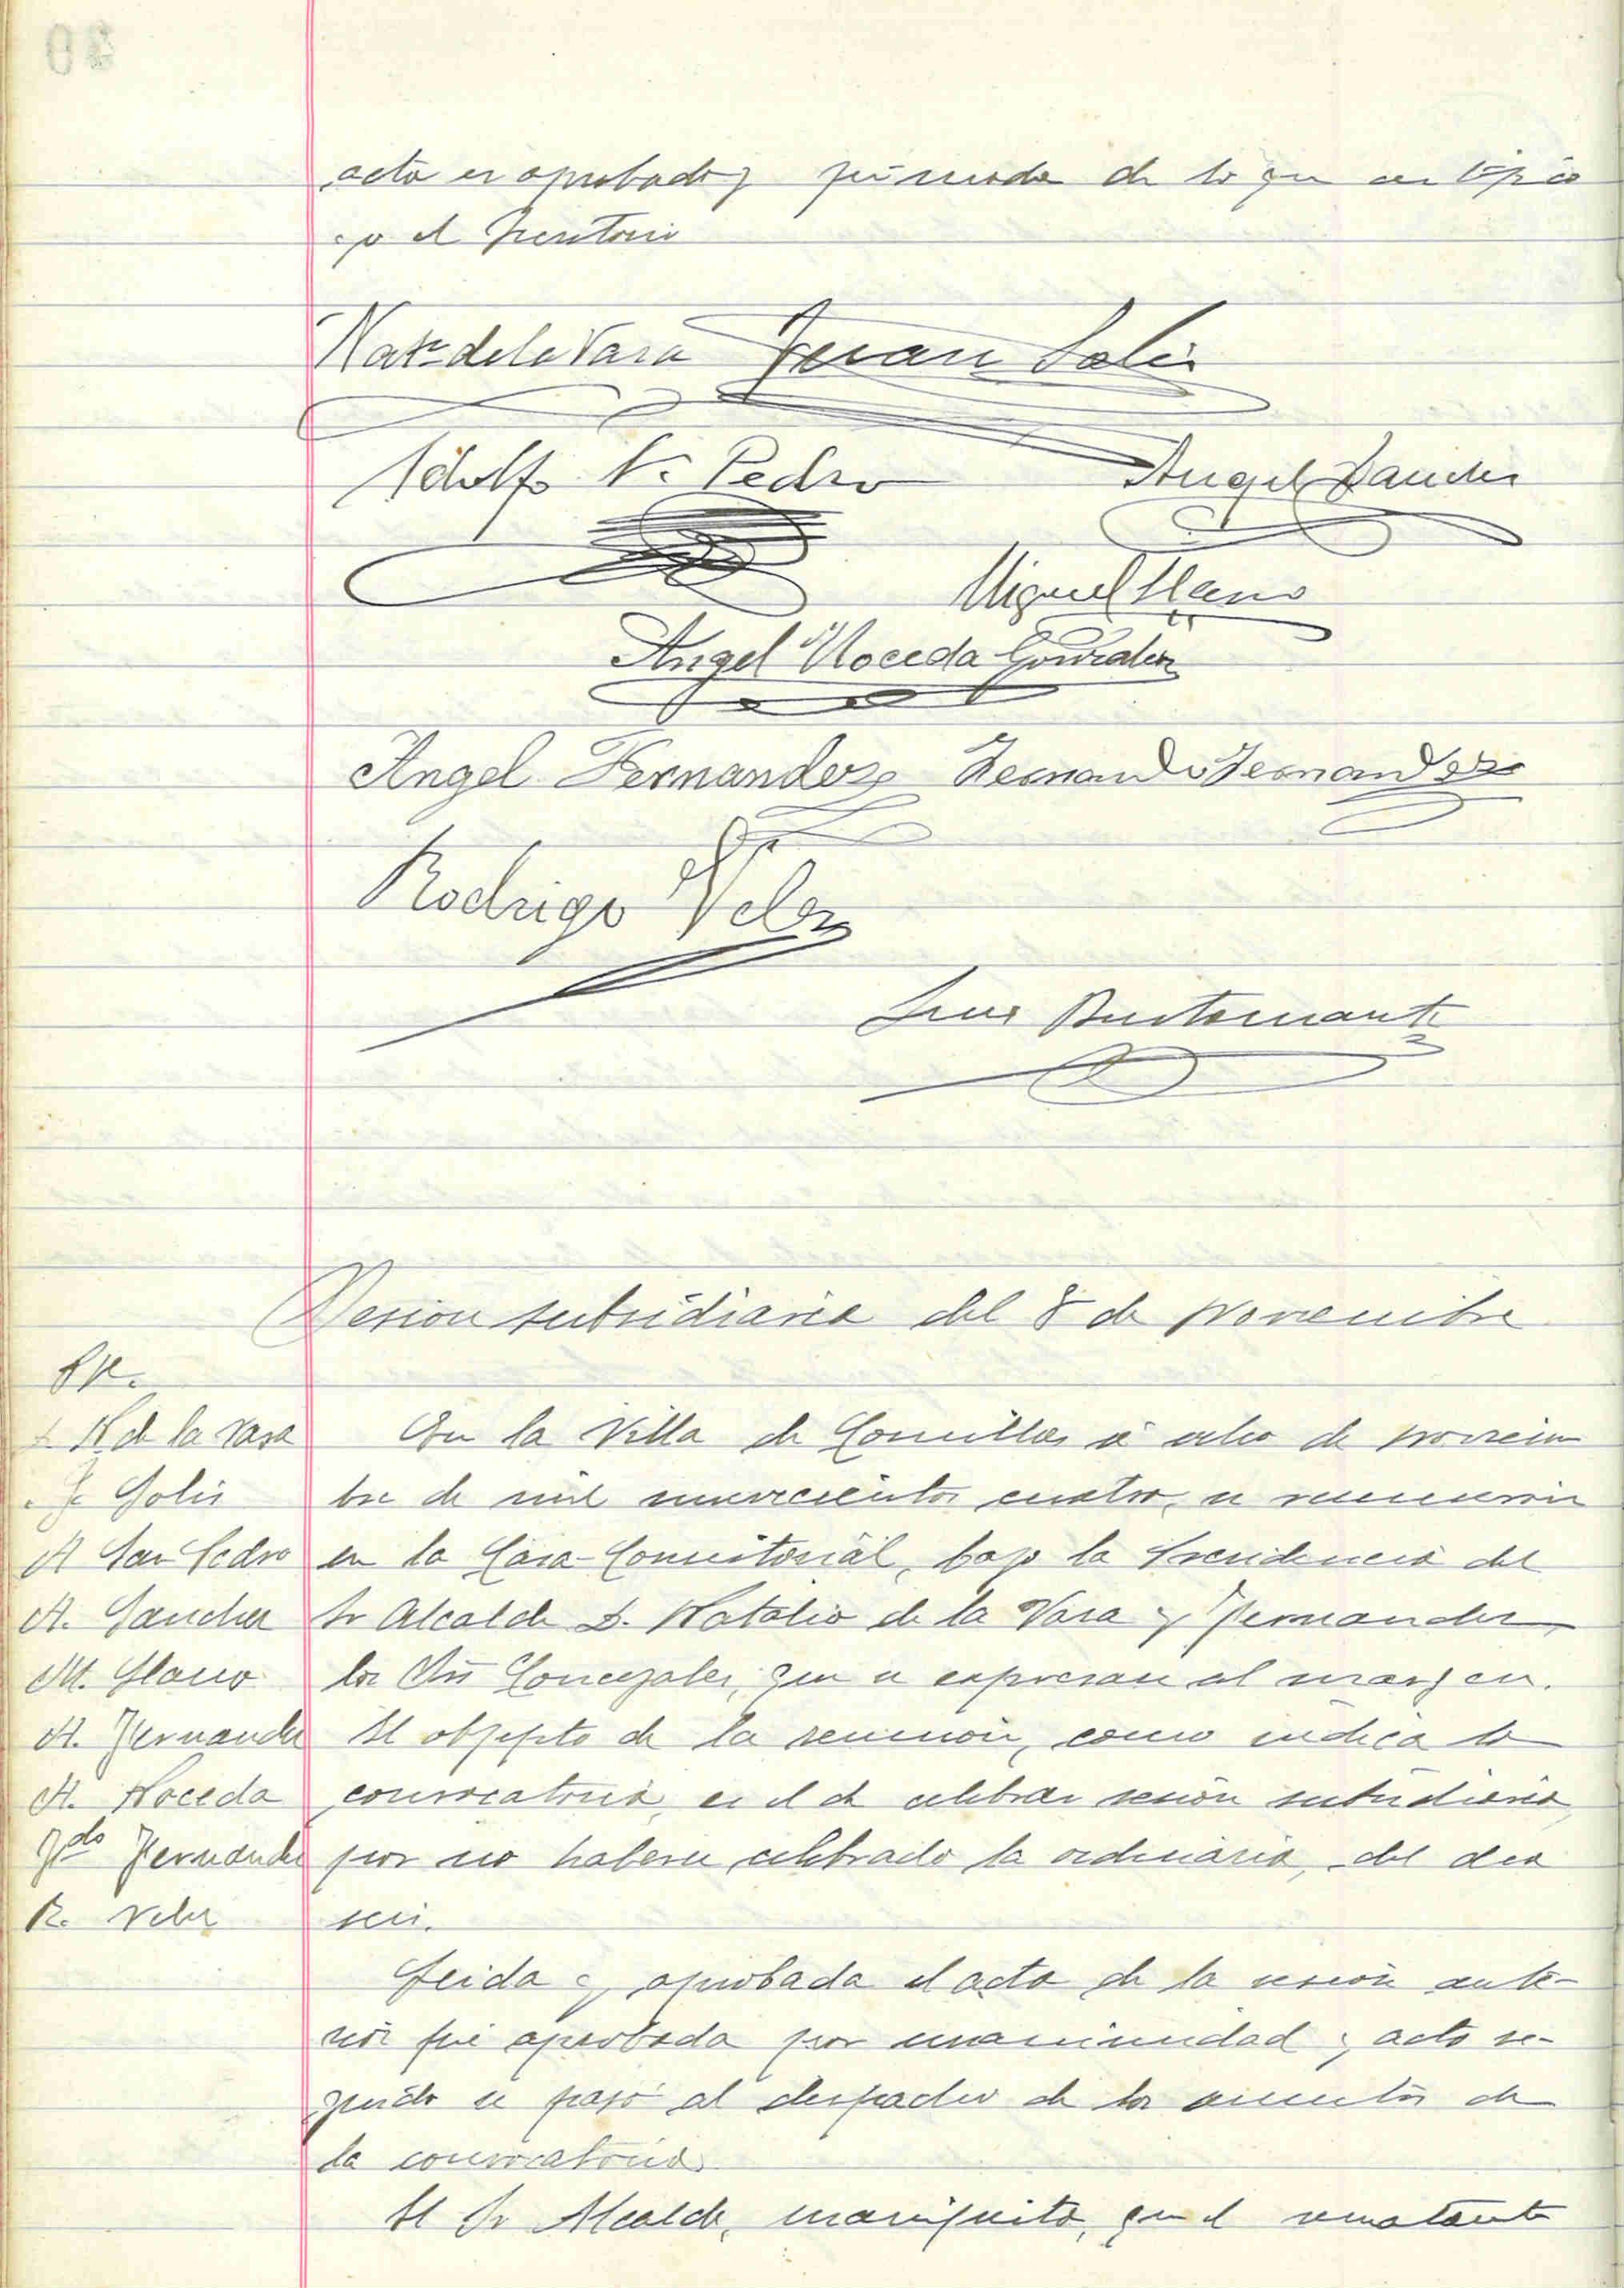 acta es aprobada y firmada de lo que certifico
yo el Secretario
Nat. de la Vara Genan Solis
Adolfo S. Pedro Angel Sanchez
Miguel Llano
Angel Noceda Gonzalez
Angel Fernandez Fernando Fernandez
Rodrigo Velez
Bustamante
Sesion subsidiaria del 8 de Noviembre
SS.
N. de la Vara
J. Solis
A. San Pedro
A. Sanchez
M. Llano
A. Fernandez
A. Noceda
Fdo Fernandez
R. Velez
En la Villa de Comillas á ocho de noviem
bre de mil novecientos cuatro, se reunieron
en la Casa-Consistorial, bajo la Presidencia del
Sr Alcalde D. Natalio de la Vara y Fernandez,
los Sres Concejales, que se expresan al margen.
El objepto de la reunion, como indica la
convocatoria, es el de celebrar sesión subsidiaria,
por no haberse celebrado la ordinaria, del dia
seis.
Leida y aprobada el acta de la sesión ante-
rior fué aprobada por unanimidad y acto se-
guido se pasó al despacho de los asuntos de
la convocatoria.
El Sr Alcalde, manifiesta, que el rematante